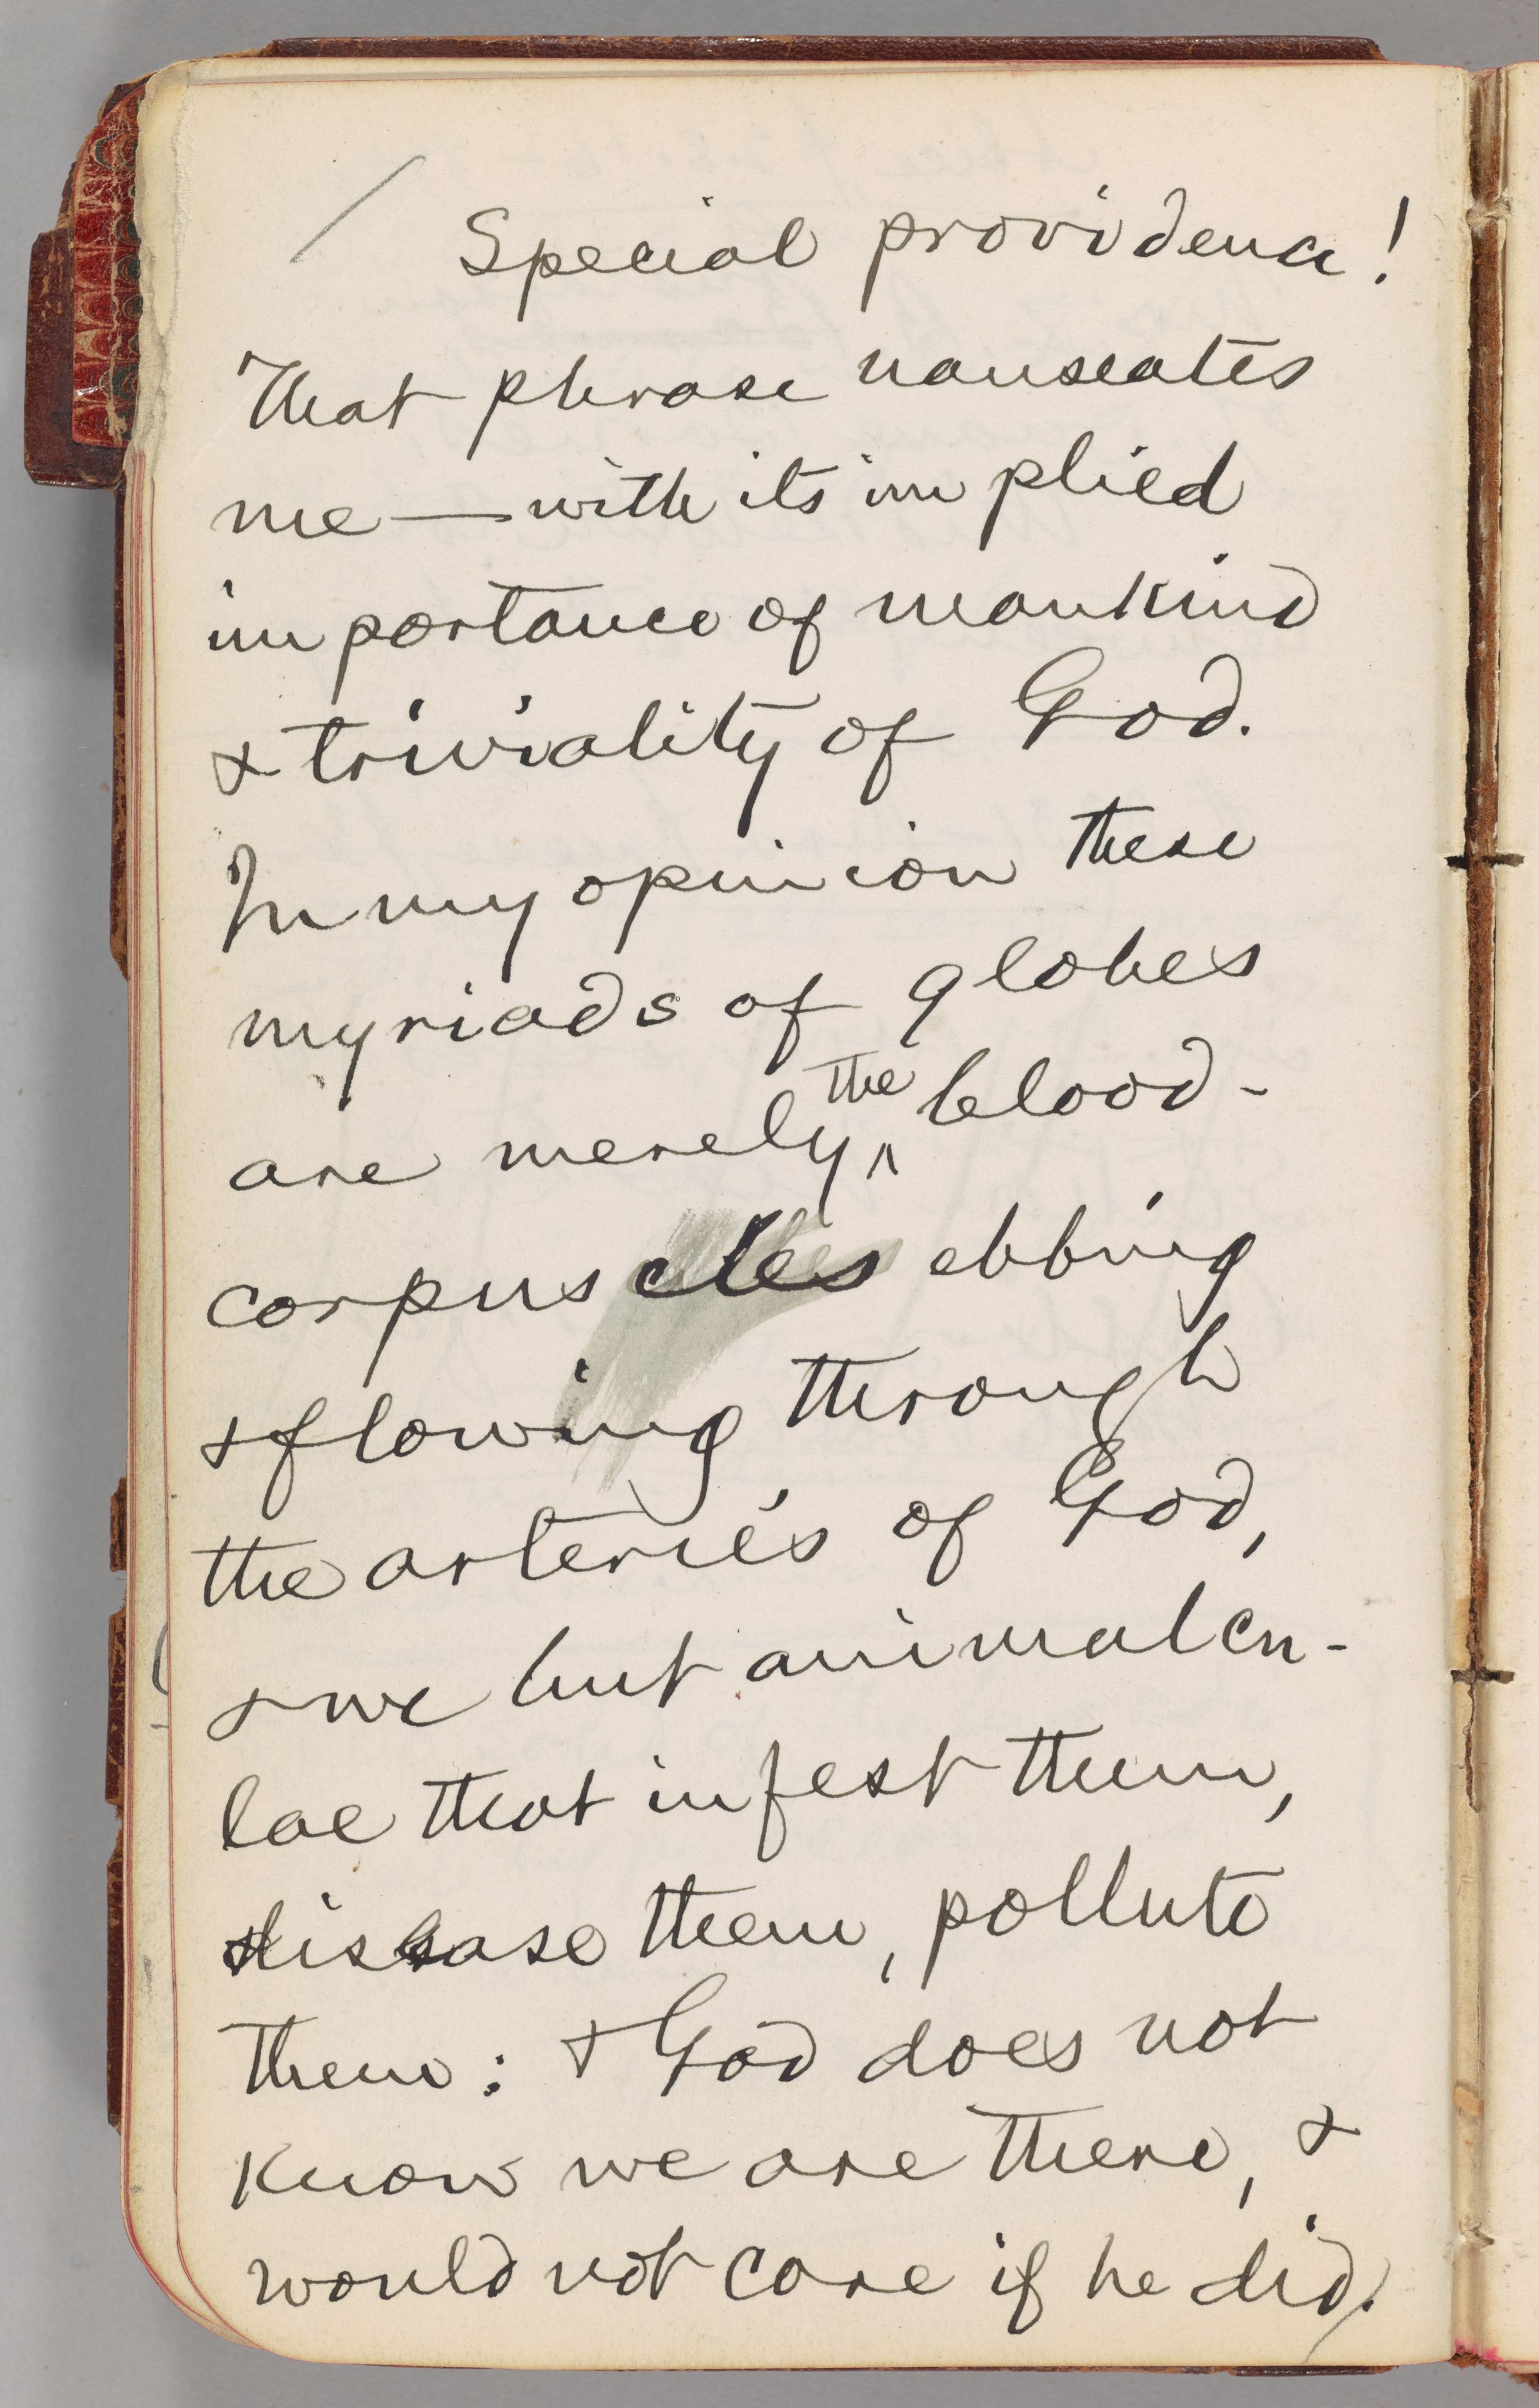 Special providence!
That phrase nauseates
me — with its implied
importance of mankind
& triviality of God.
In my opinion these
myriads of globes
are merely the blood-
corpuscles ebbing
& flowing through
the arteries of God,
& we but animalcu-
lae that infest them,
disease them, pollute
them: & God does not
know we are there, &
would not care if he did.